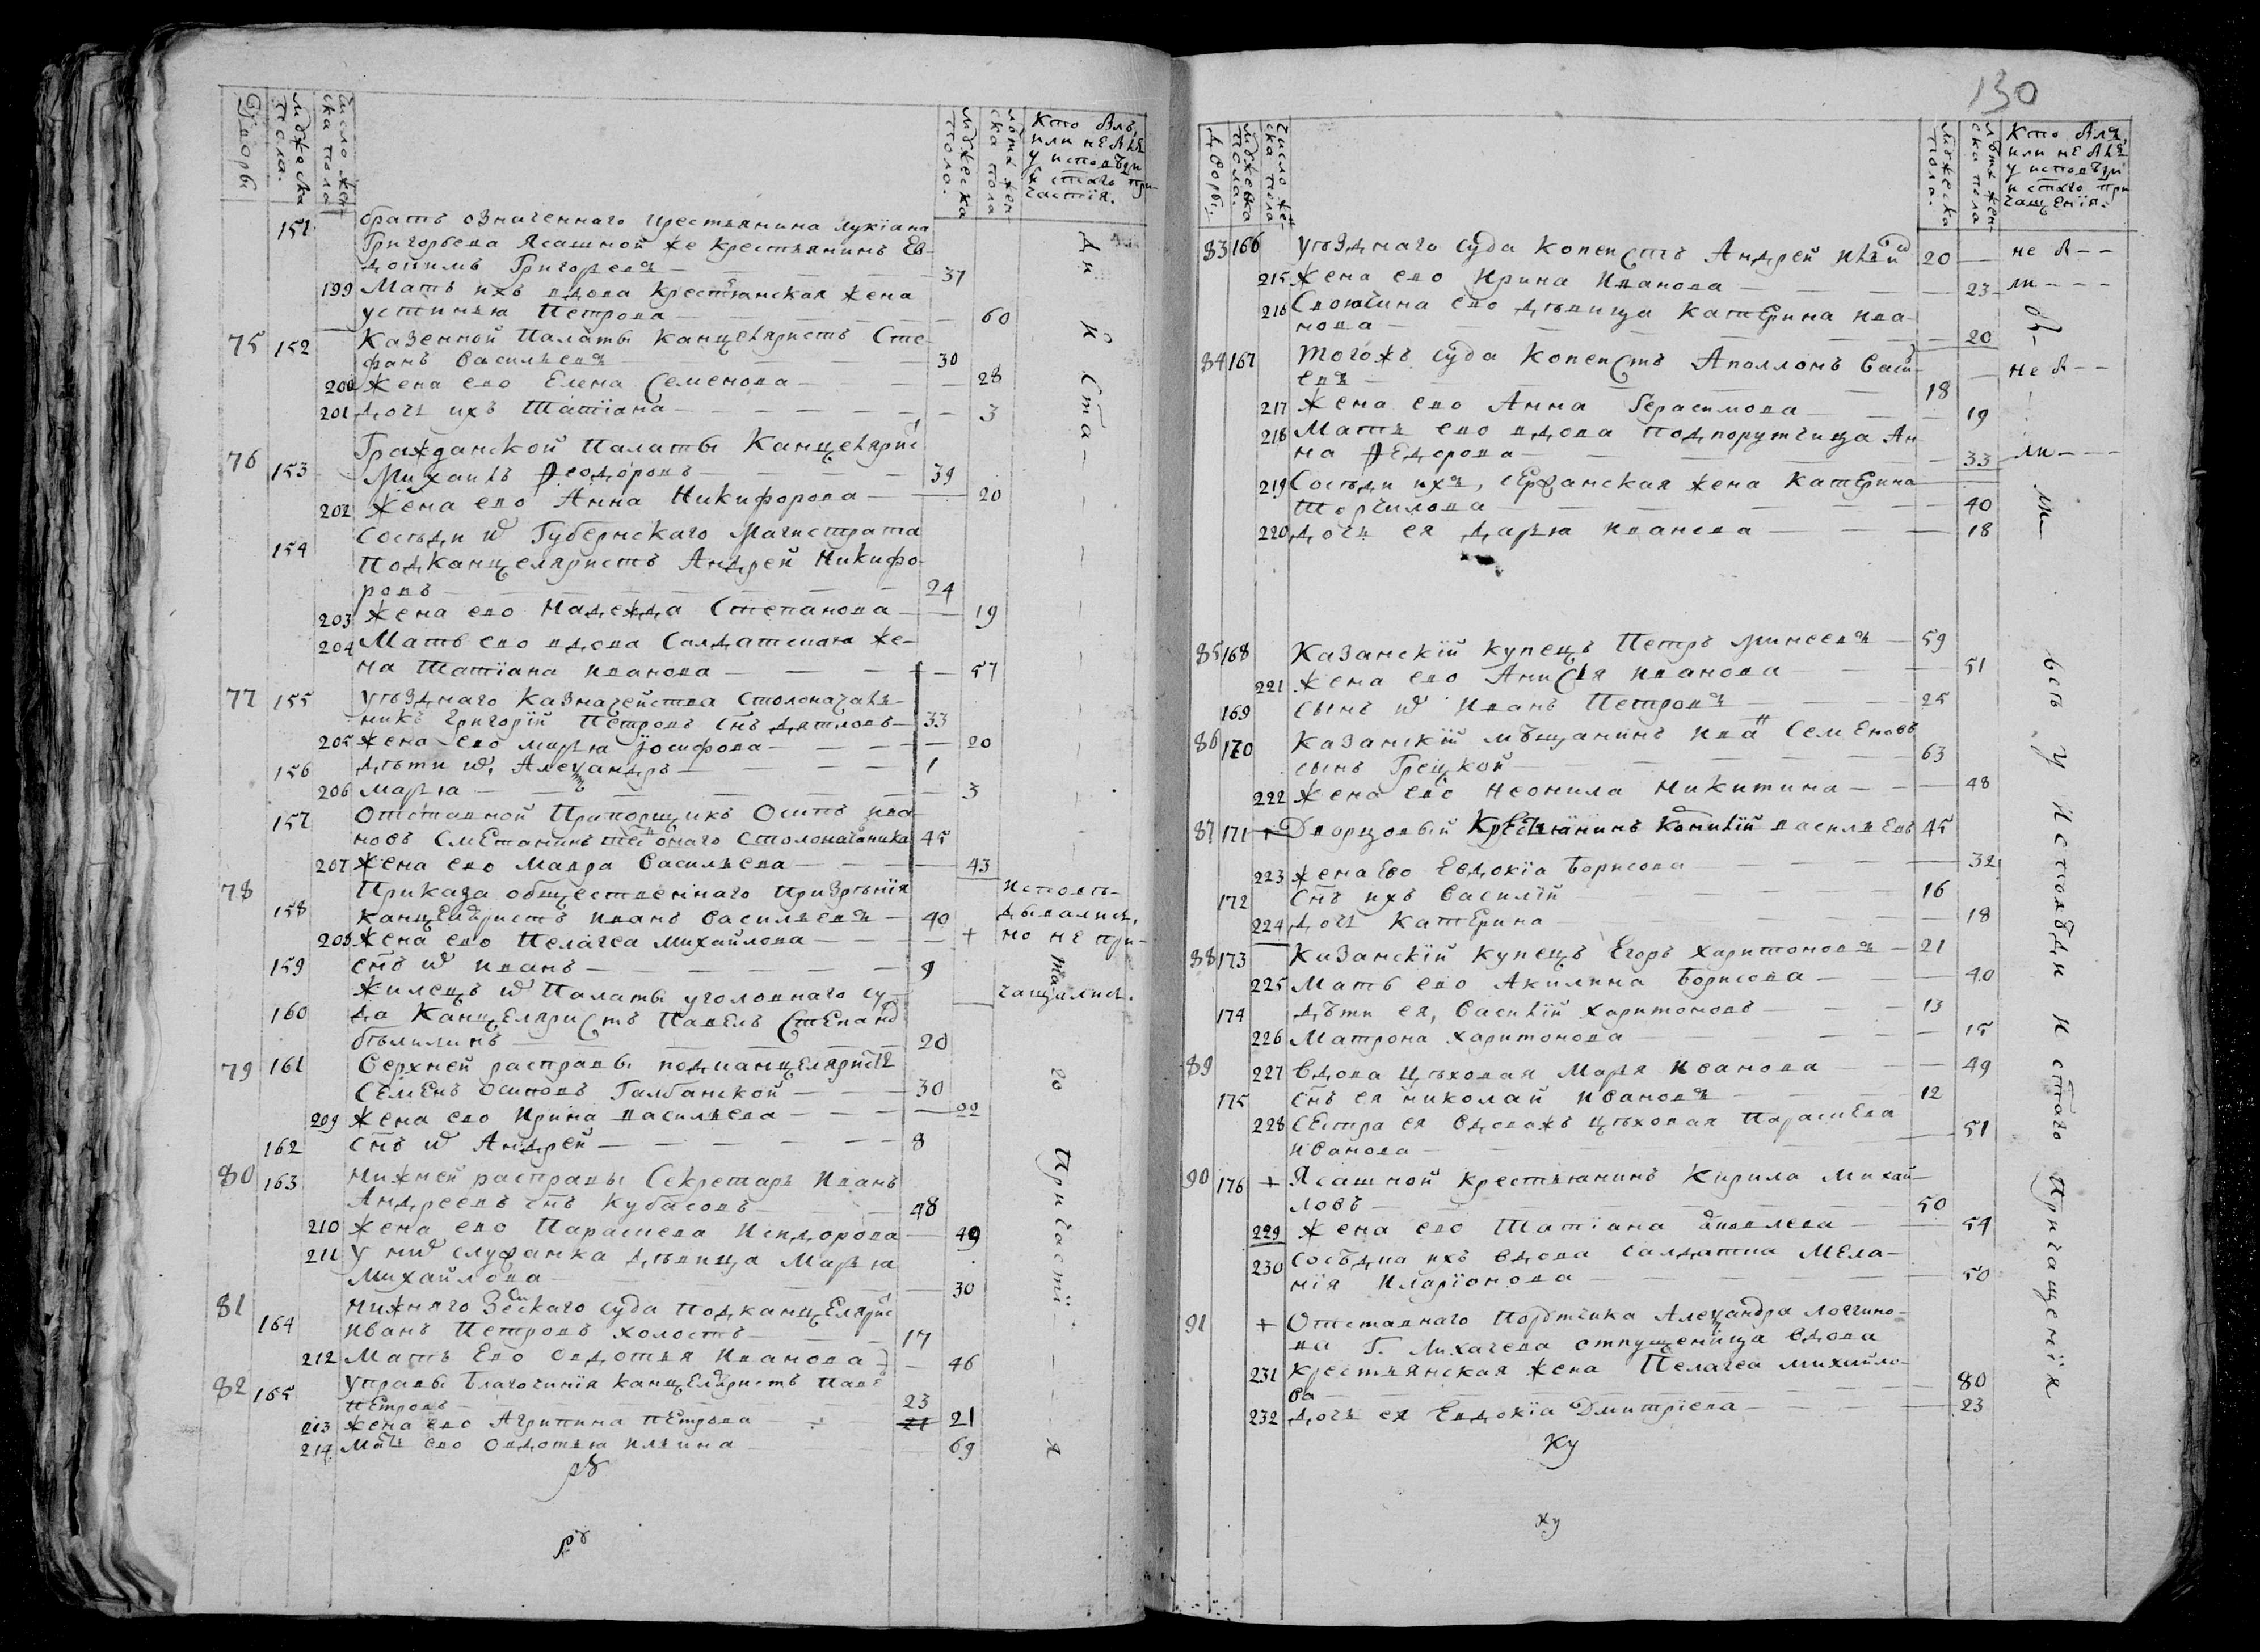 Дворы
мужеска пола.
Число женска пола
мужеска пола.
лѣта женска пола
Кто былъ,
или не былъ
у исповѣди
и стаго при-
частїя.
151 братъ означеннаго крестьянина Лукїана
Григорьева Ясашной же крестьянинъ Ев-
докимъ Григорьевъ 37
199 Мать ихъ вдова крестьянская жена
устинья Петрова 60
75 152 Казенной Палаты Канцеляристъ Сте-
фанъ Васильевъ 30
200 жена ево Елена Семенова 28
201 дочь ихъ Татїана 3
76 Гражданской Палаты Канцелярис
153 Михаилъ Ѳеодоровъ 39
202 жена ево Анна Никифорова 20
Сосѣди и Губернскаго Магистрата
154 Подканцеляристъ Андрей Никифо-
ровъ 24
203 жена ево Надежда Степанова 19
204 Мать ево вдова Салдатская же-
на Татїана Иванова 57
77 155 Уѣзднаго Казначейства Столоначаль-
никъ Григорїй Петровъ снъ Дятловъ 33
205 жена ево марья Іосифова 20
156 дѣти и, Александръ 1
206 марья 3
157 Отставной Прапорщикъ Осипъ ива-
новъ Сметанинъ столоначалника 45
207 жена ево Мавра Васильева 43
78 Приказа общественнаго Призрѣнїя исповѣ-
158 канцеляристъ Иванъ Васильевъ 40 дывались,
208 жена ево Пелагеа Михайлова + но не при-
159 снъ и Иванъ 9
жилецъ и Палаты уголовнаго су- чащались.
160 да Канцеляристъ Павелъ Степано
бѣлилинъ 20
79 161 Верхней расправы подканцелярист
Семенъ Осиповъ Галбанской 30
209 жена ево Ирина Васильева 22
162 снъ и Андрей 8
80 163 Нижней расправы Секретарь Иванъ
Андреевъ снъ Кубасовъ 48
210 жена ево Парасиева Исидорова 49
211 У ни служанка дѣвица Марья
Михайлова 30
81 Нижняго Земскаго суда Подканцелярис
164 Иванъ Петровъ холостъ 17
212 Мать Ево Овдотья Иванова 46
82 165 Управы Благочинїя канцеляристъ Паве
Петровъ 23
213 жена ево Агрипина Петрова 21 21
214 Мать ево Овдотья Ильина 69
ди и ста-
го причастї-
я
130
Дворы.
мужеска пола.
число женска пола
мужеска пола.
лѣта женска пола
Кто былъ,
или не былъ
у исповѣди
и стаго при
чащенїя.
83 166 Уѣзднаго суда Копеистъ Андрей Иль 20 не б--
215 жена ево Ирина Иванова 23 ли---
216 Своячина ево дѣвица Катерина Ива-
нова 20
84 167 Тогожъ суда Копеистъ Аполлонъ Васи не б--
евъ 18
217 жена ево Анна Герасимова 19
218 Мать ево вдова подпорутчица Ан
на Ѳедорова 33 ли---
219 Сосѣди ихъ, сержанская жена Катерина
Торчилова 40
220 дочь ея Дарья Иванова 18
85 168 Казанскїй купецъ Петръ Минеевъ 59
221 жена ево Анисья Иванова 51
169 сынъ и Иванъ Петровъ 25
86 170 Казанскїй мѣщанинъ Иван Семеновъ
сынъ Грецкой 63
222 жена ево Неонила Никитина 48
87 171 + Дворцовый Крестьянинъ Васильевъ 45
223 жена Ево Евдокїа Борисова 32
172 снъ ихъ Василїй 16
224 дочь Катерина 18
88 173 Казанскїй Купецъ Егоръ Харитоновъ 21
225 Мать ево Акилина Борисова 40
174 дѣти ея, Василїй Харитоновъ 13
226 Матрона Харитонова 15
89 227 Вдова цѣховая Марья Иванова 49
175 снъ ея николай Ивановъ 12
228 Сестра ея вдоважъ цѣховая Парасиева
Иванова 51
90 176 + Ясашной крестьянинъ Кирила Михай-
ловъ 50
229 жена ево Татїана Яковлева 54
230 сосѣдка ихъ вдова салдатка Мела-
нїя Иларїонова 50
91 + Отставнаго Порутчика Александра Логгино-
ва Г. Лихачева отпущеница вдова
231 крестьянская жена Пелагеа Михайло-
ва 80
232 дочь ея Евдокїа Дмитрїева 23
ку
ку
у исповѣди и стаго причащенїя